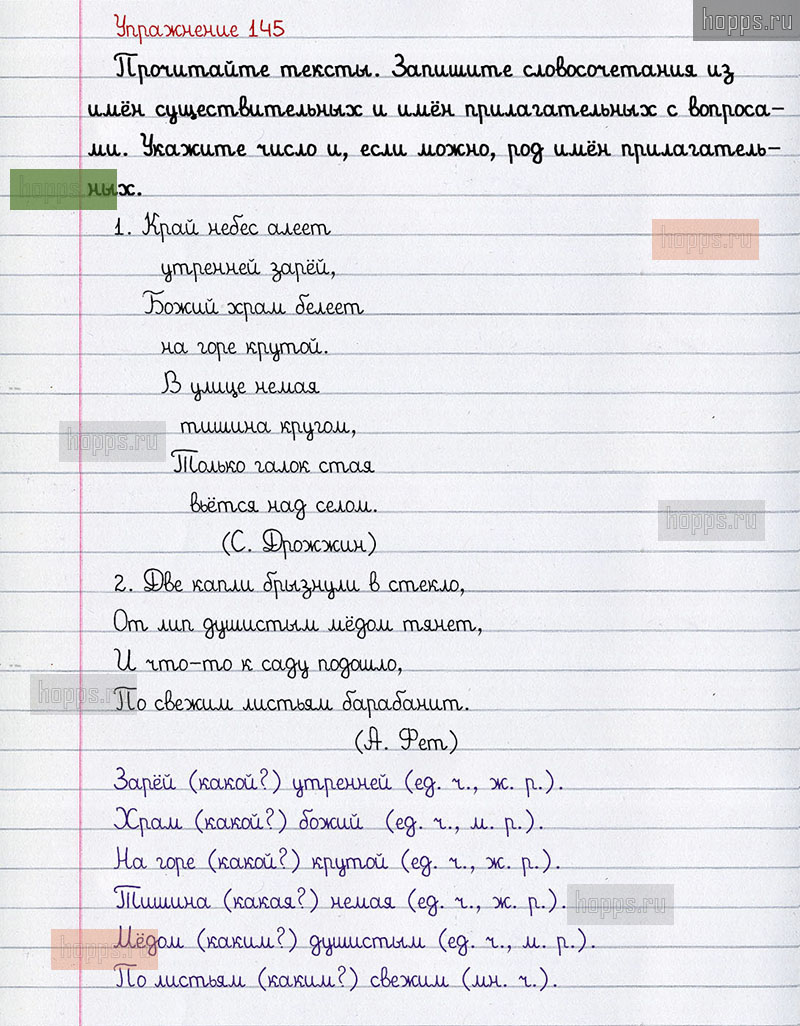 hopps.ru
Упражнение 145
Прочитайте тексты. Запишите словосочетания из
имён существительных и имён прилагательных с вопроса-
ми. Укажите число и, если можно, род имён прилагатель-
ных.
hopps.ru
hopps.ru
1. Край небес алеет
утренней зарёй,
Божий храм белеет
на горе крутой.
В улице немая
тишина кругом,
hopps.ru
Только галок стая
вьётся над селом.
hopps.ru
(С. Дрожжин)
2. Две капли брызнули в стекло,
От лип душистым мёдом тянет,
И что-то к саду подошло,
hopps.ru
По свежим листьям барабанит.
(А. Фет)
Зарёй (какой?) утренней (ед. ч., ж. р.).
Храм (какой?) божий (ед. ч., м. р.).
На горе (какой?) крутой (ед. ч., ж. р.).
Тишина (какая?) немая (ед. ч., ж. р.).
hopps.ru
Мёдом (каким?) душистым (ед. ч., м. р.).
hopps.ru
По листьям (каким?) свежим (мн. ч.).